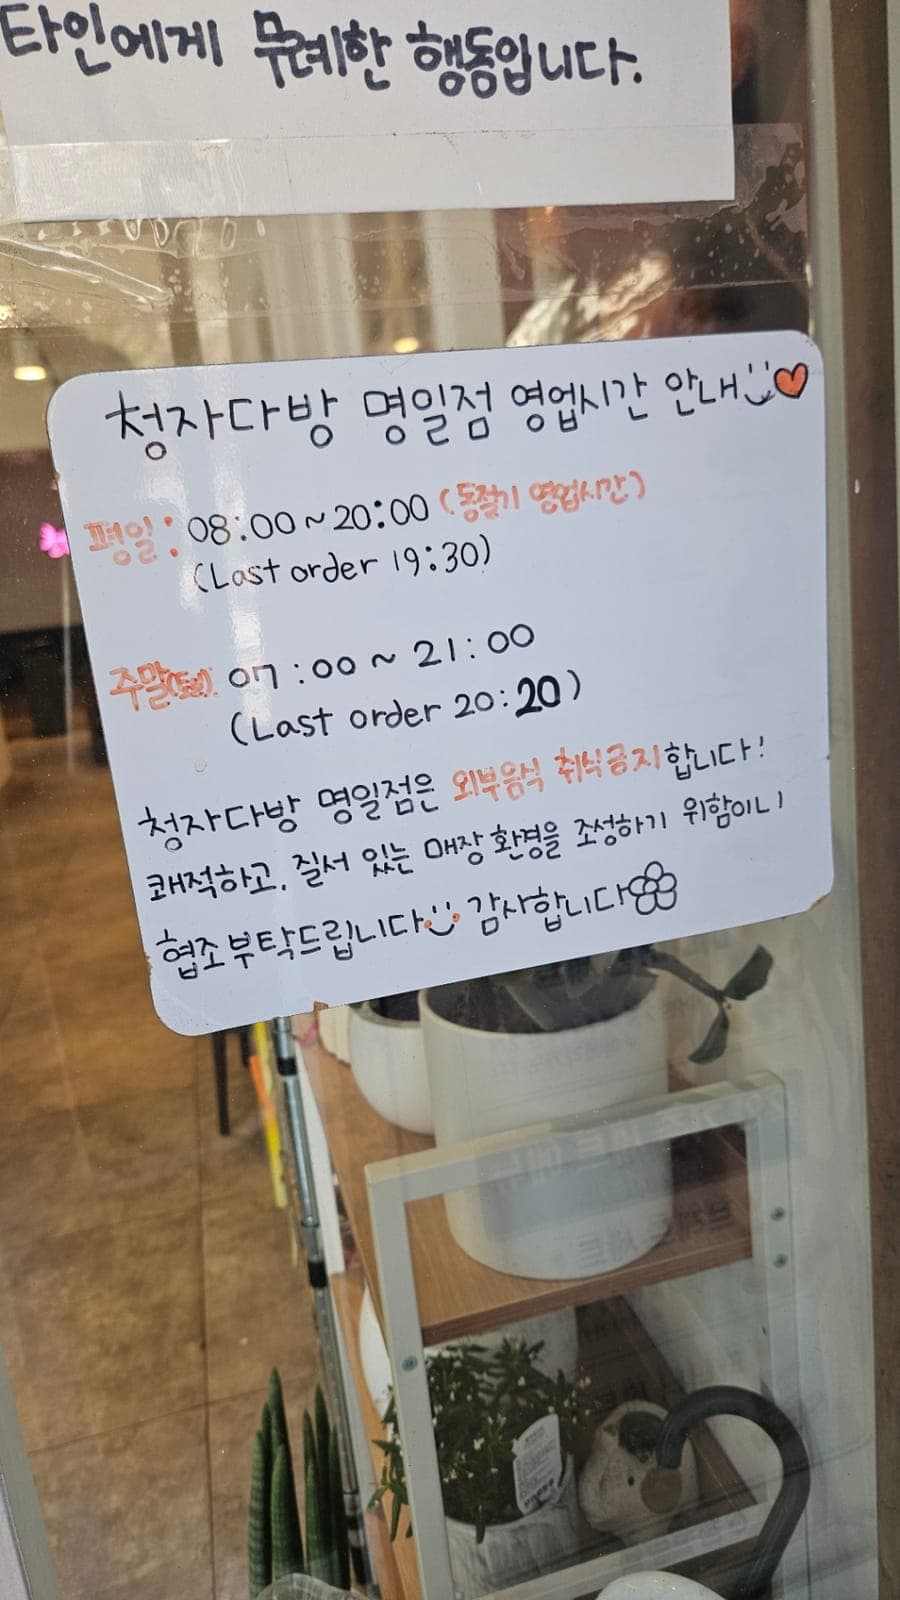 타인에게 무례한 행동입니다.
청자다방 명일점 영업시간 안내
평일: 08:00~20:00 (동절기 영업시간)
(Last order 19:30)
주말(토,일). 07:00 ~ 21:00
(Last order 20:20)
청자다방 명일점은 외부음식 취식금지합니다!
쾌적하고, 질서 있는 매장 환경을 조성하기 위함이니
협조부탁드립니다 감사합니다